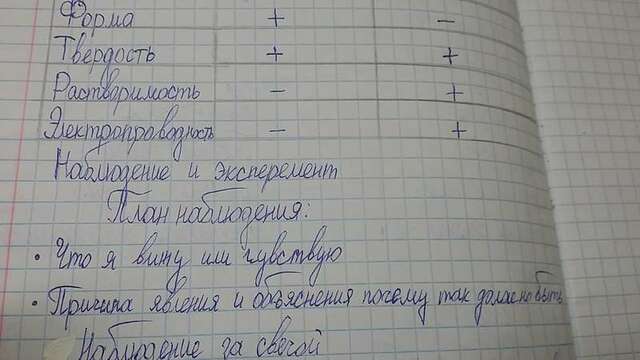 Форма + -
Твёрдость + +
Растворимость - +
Электропроводность - +
Наблюдение и эксперемент
План наблюдения:
• Что я вижу или чувствую
• Причина явения и объяснения почему так должно быть
Наблюдение за свечой